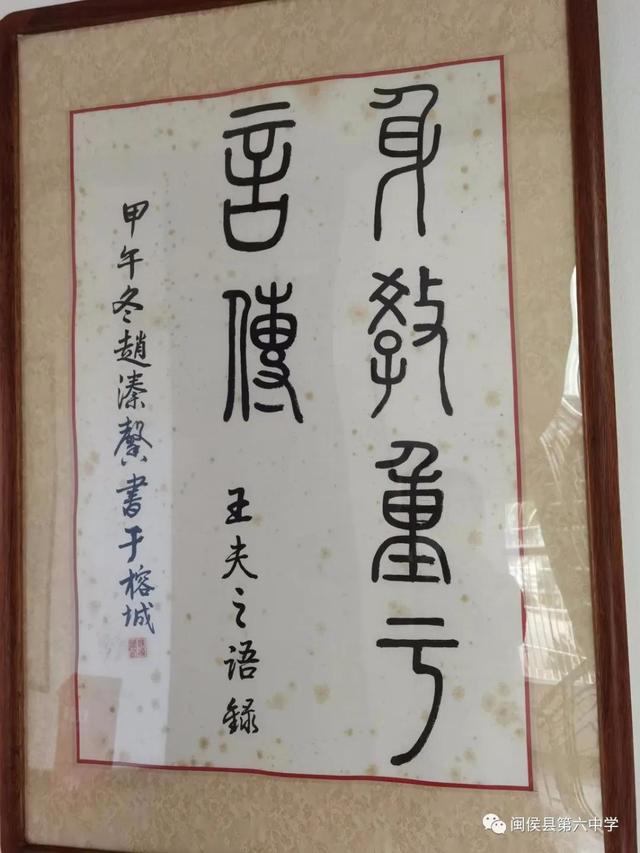 身教重亏
言傳
王夫之语录
甲午冬趙溱馨書于榕城
闽侯县第六中学